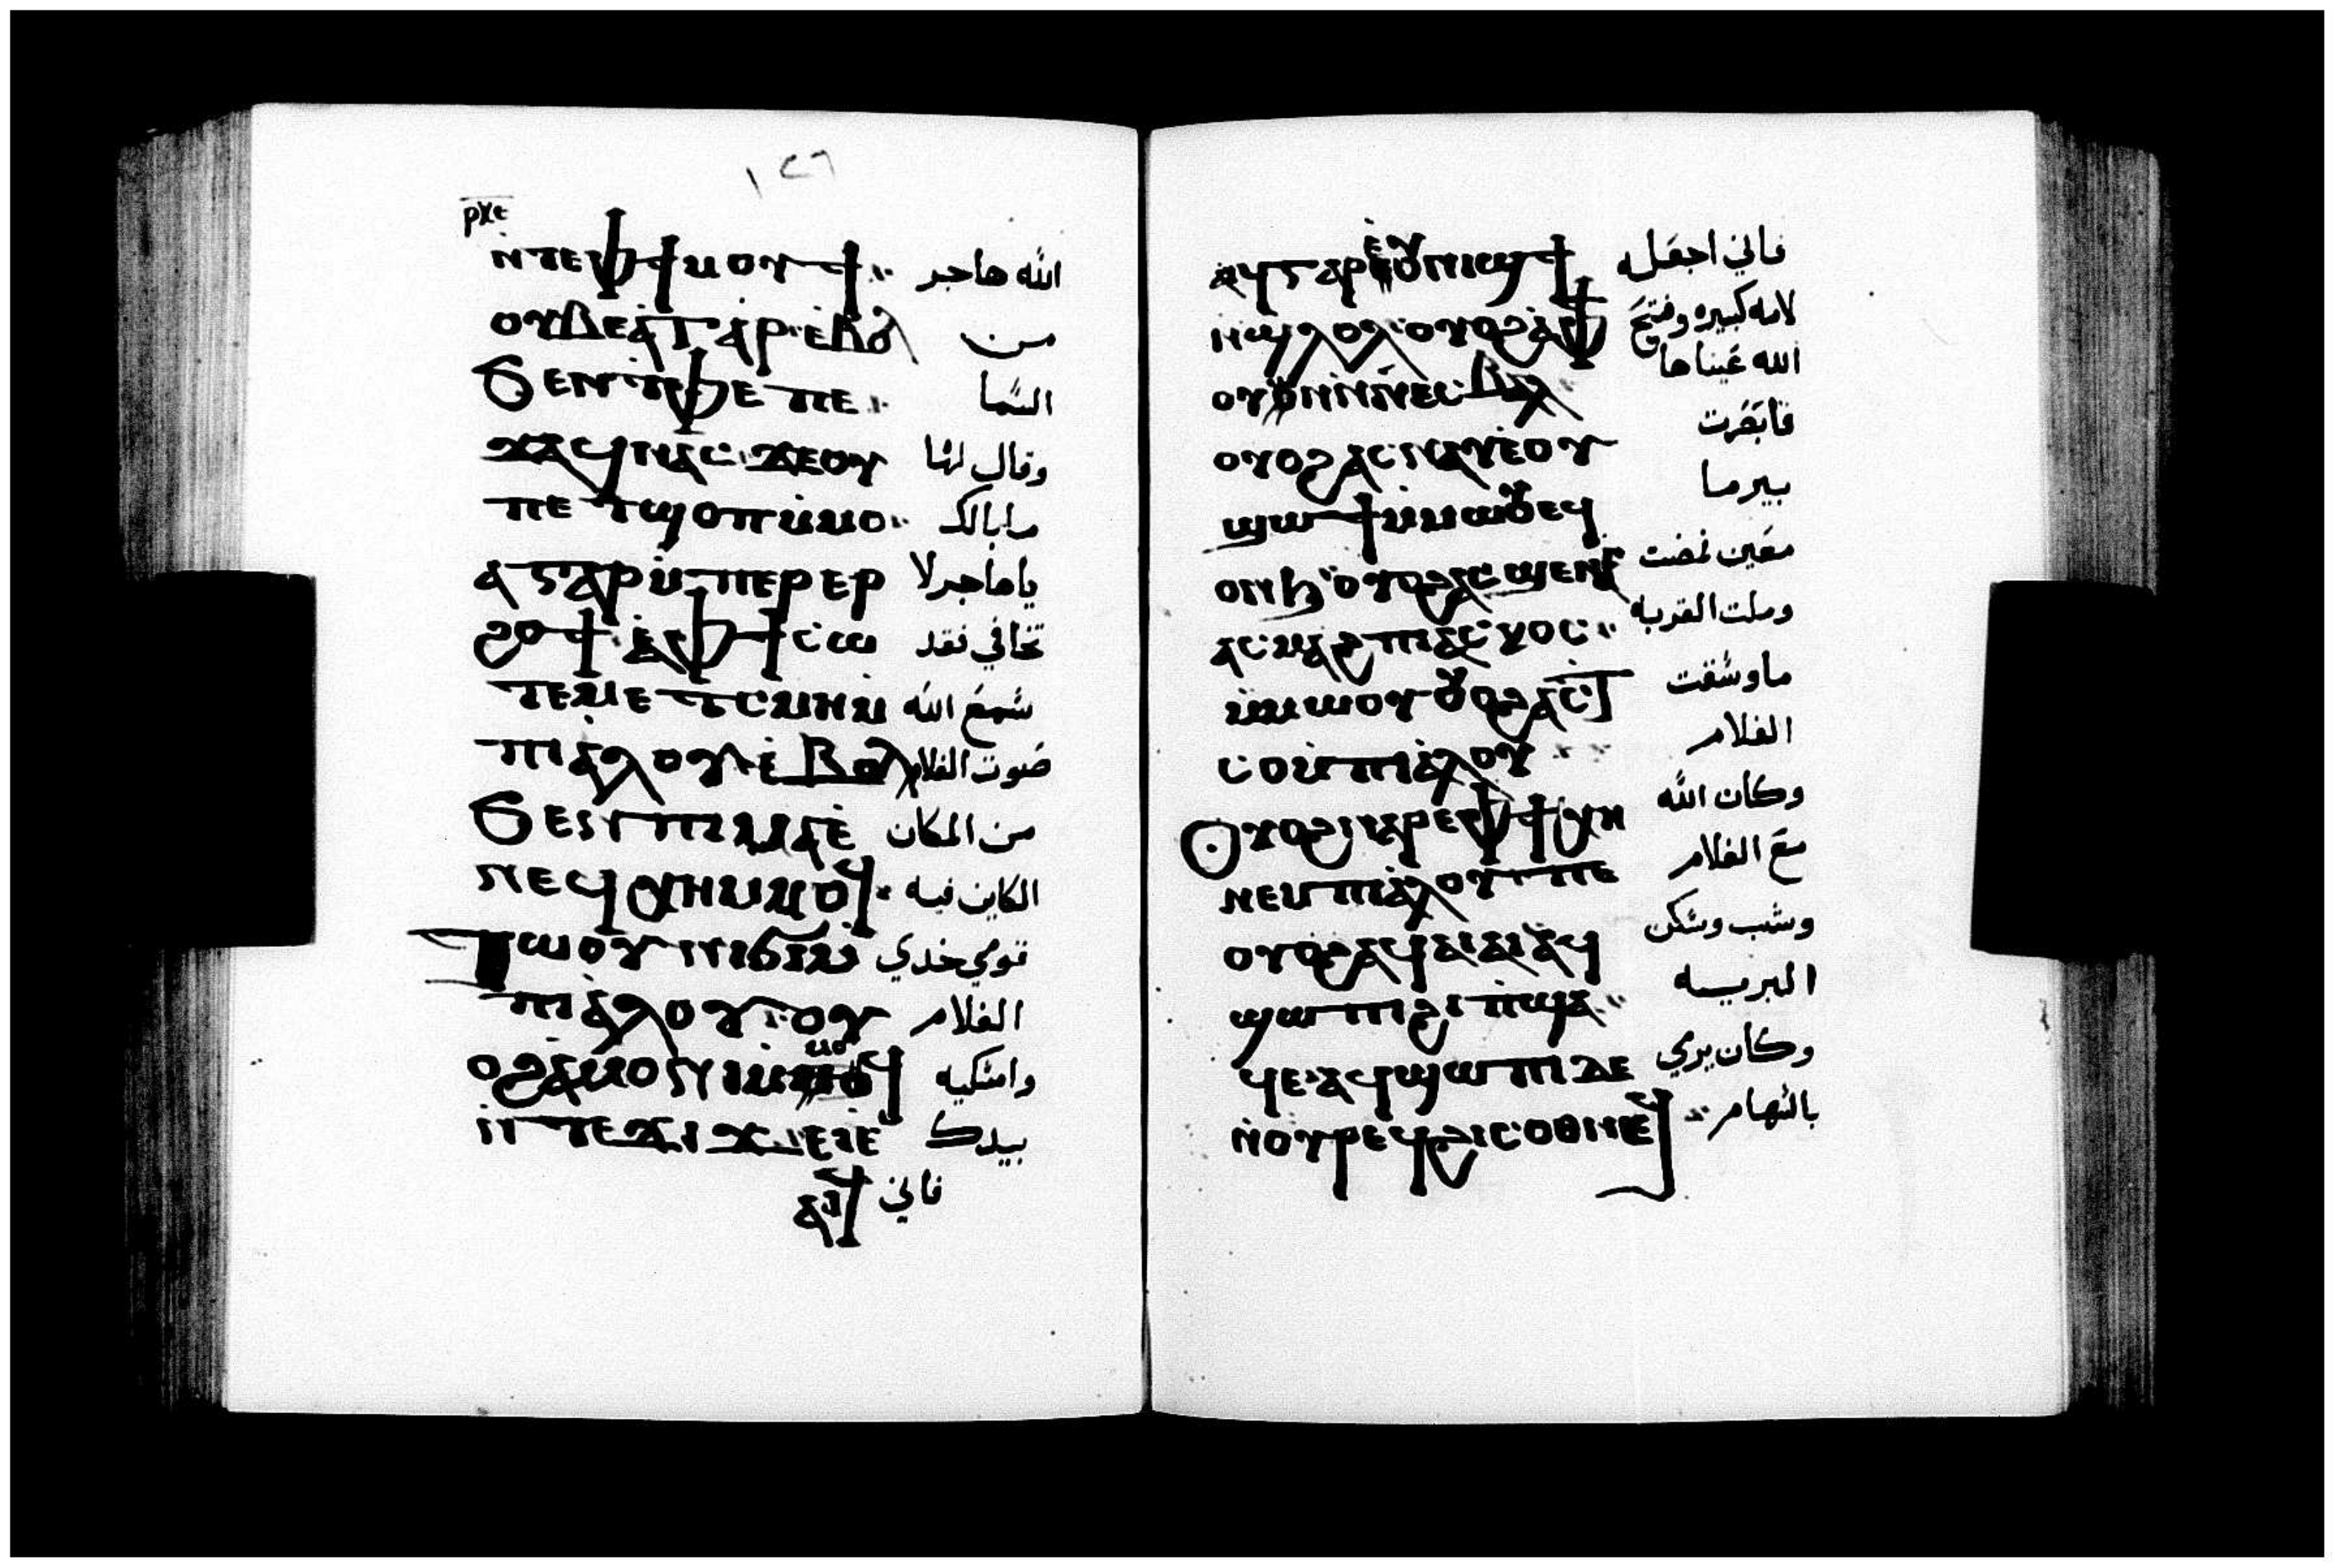 ١٢٦
ⲣⲕⲉ
ⲛ̀ⲧⲉⲫϯⲙⲟⲩϯ الله هاجر
ⲟⲩⲃⲉⲁⲅⲁⲣ ⲉ̀ⲃⲟⲗ من
ϧⲉⲛⲧⲫⲉ ⲡⲉ السما
ϫⲁϥⲛⲁⲥ ϫⲉⲟⲩ وقال لها
ⲡⲉⲧϣⲟⲡⲙ̀ⲙⲟ مابالك
ⲁⲅⲁⲣ ⲙ̀ⲡⲉⲣⲉⲣ ياهاجر لا
ϩⲟϯ ⲁ̀ⲫϯⲥⲱ تخافي فقد
ⲧⲉⲙⲉⲧⲥⲙⲏⲙ سمع الله
ⲡⲓⲁⲗⲟⲩ ⲉ̀ⲃⲟⲗ صوت الغلام
ϧⲉⲛⲡⲓⲙⲁⲉ̀ من المكان
ⲛⲉϥⲭⲏⲙⲙⲟϥ الكاين فيه
ⲧⲱⲟⲩⲛⲓϭⲓⲙ̀ قومي خدي
ⲡⲓⲁⲗⲟⲩ ⲟⲩ الغلام
ⲟϩⲁⲙⲟⲛⲓⲙ̀ⲙⲟϥ وامسكيه
ⲛ̀ⲧⲉϫⲓϫ ⲉⲓⲉ̀ بيدك
ⲁⲓ فاني
ⲁϥⲅⲁⲣⲉ̀ⲟⲩⲛⲓϣϯ فاني اجعله
ⲛϣⲗⲟⲗ ⲟⲩⲟϩⲁ̀ⲫϯ لامه كبيره وفتح
ⲟⲩⲱⲛⲛ̀ⲛⲉⲥⲃⲁⲗ الله عيناها
ⲟⲩⲟϩⲁⲥⲛⲁⲩⲉ̀ⲟⲩ فابصرت
ϣⲱϯⲙ̀ⲙⲱⲟⲩⲉϥ بيرما
ⲟⲛϧ ⲟⲩⲟϩⲁⲥϣⲉⲛⲁⲥ معين فمضت
ⲁⲥⲙⲁϩⲡⲓⲁⲥⲭⲟⲥ وملت القربه
ⲙ̀ⲙⲱⲟⲩ ⲟⲩⲟϩⲁⲥⲧ ما وسقت
ⲥⲟⲙ̀ⲡⲓⲁⲗⲟⲩ الغلام
ⲟⲩⲟϩⲛⲁⲣⲉⲫϯⲭⲏ وكان الله
ⲛⲉⲙⲡⲓⲁⲗⲟⲩ ⲡⲉ مع الغلام
ⲟⲩⲟϩⲁϥⲁⲓⲁⲓ ⲁϥ وشب وسكن
ϣⲱⲡⲓϩⲓⲡϣⲁ البريه
ϥⲉ ⲁϥϣⲱⲡⲓⲇⲉ وكان يري
ⲛ̀ⲟⲩⲣⲉϥϩⲓⲥⲟⲑⲛⲉϥ بالسهام